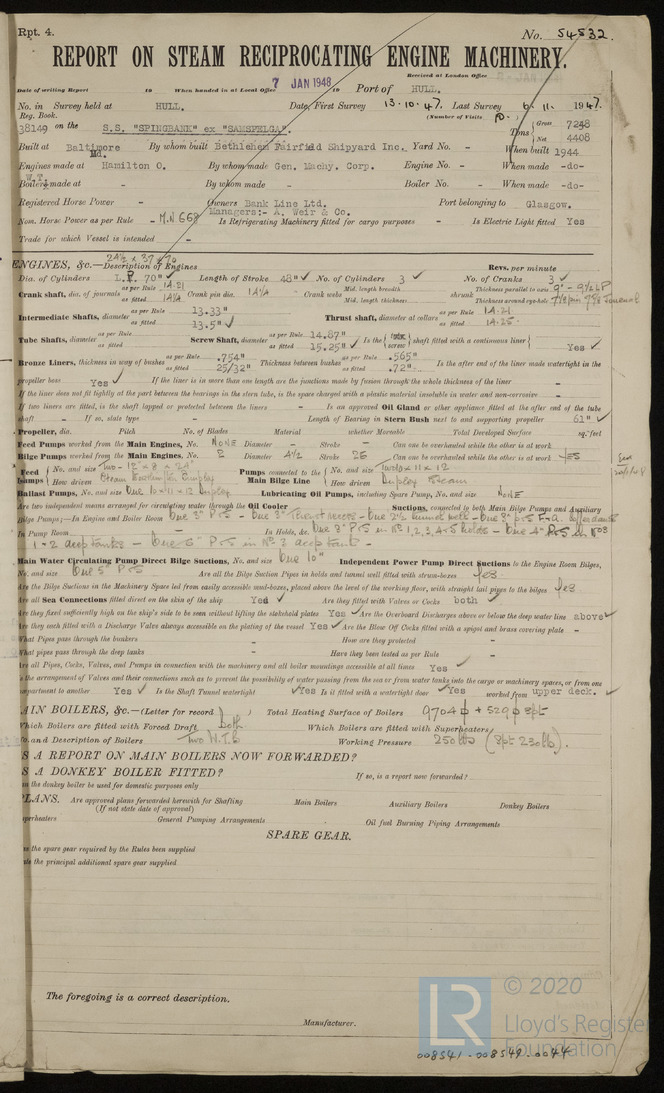 Rpt. 4.
No. 54532.
REPORT ON STEAM RECIPROCATING ENGINE MACHINERY.
Received at London Office
Date of writing Report 19 When handed in at Local Office 7 JAN 1948 19 Port of HULL.
No. in Survey held at HULL. Date, First Survey 13.10.47. Last Survey 6.11. 1947.
Reg. Book. (Number of Visits
38149 on the S.S. "SPINGBANK" ex "SAMSFELGA". Tons Gross 7248
Net 4408
Built at Baltimore Md. By whom built Bethlehem Fairfield Shipyard Inc. Yard No. - When built 1944
Engines made at Hamilton O. By whom made Gen. Machy. Corp. Engine No. - When made -do-
W.T. Boilers made at - By whom made - Boiler No. - When made -do-
Registered Horse Power - Owners Bank Line Ltd. Port belonging to Glasgow.
Managers:- A. Weir & Co.
Nom. Horse Power as per Rule - M.N 668 Is Refrigerating Machinery fitted for cargo purposes - Is Electric Light fitted Yes
Trade for which Vessel is intended -
ENGINES, &c.—Description of Engines 24½ x 37 x 70
Revs. per minute
Dia. of Cylinders L.P. 70" Length of Stroke 48" No. of Cylinders 3 No. of Cranks 3
Crank shaft, dia. of journals as per Rule 14.21 as fitted 14¼ Crank pin dia. 14¼ Crank webs Mid. length breadth Mid. length thickness shrunk Thickness parallel to axis 9" - 9½ LP Thickness around eye-hole
Intermediate Shafts, diameter as per Rule 13.33" as fitted 13.5" Thrust shaft, diameter at collars as per Rule 14.21 as fitted 14.25
Tube Shafts, diameter as per Rule as fitted Screw Shaft, diameter as per Rule 14.87" as fitted 15.25" Is the tube screw shaft fitted with a continuous liner Yes
Bronze Liners, thickness in way of bushes as per Rule .754" as fitted 25/32" Thickness between bushes as per Rule .565" as fitted .72" Is the after end of the liner made watertight in the
propeller boss Yes If the liner is in more than one length are the junctions made by fusion through the whole thickness of the liner -
If the liner does not fit tightly at the part between the bearings in the stern tube, is the space charged with a plastic material insoluble in water and non-corrosive -
If two liners are fitted, is the shaft lapped or protected between the liners - Is an approved Oil Gland or other appliance fitted at the after end of the tube
shaft - If so, state type - Length of Bearing in Stern Bush next to and supporting propeller 61"
Propeller, dia. Pitch No. of Blades Material whether Moveable Total Developed Surface sq. feet
Feed Pumps worked from the Main Engines, No. NONE Diameter - Stroke - Can one be overhauled while the other is at work -
Bilge Pumps worked from the Main Engines, No. 2 Diameter 4½ Stroke 26 Can one be overhauled while the other is at work YES
Feed Pumps No. and size Two - 12" x 8 x 24" How driven Steam Pumps connected to the Main Bilge Line No. and size Two 10 x 11 x 12 How driven Duplex Steam
Ballast Pumps, No. and size One 10 x 11 x 12 Duplex Lubricating Oil Pumps, including Spare Pump, No. and size NONE
Are two independent means arranged for circulating water through the Oil Cooler Suctions, connected to both Main Bilge Pumps and Auxiliary
Bilge Pumps;—In Engine and Boiler Room One 3" P+S - One 3" Thrust recess - One 2½ tunnel well - One 3" P+S F+A cofferdams
In Pump Room In Holds, &c. One 3" P+S in Nº 1, 2, 3, 4+5 holds - One 4" P+S in Nº3
1 - 2 deep tanks - One 6" P+S in Nº 3 deep tank -
Main Water Circulating Pump Direct Bilge Suctions, No. and size One 10" Independent Power Pump Direct Suctions to the Engine Room Bilges,
No. and size One 5" P+S Are all the Bilge Suction Pipes in holds and tunnel well fitted with strum-boxes Yes
Are the Bilge Suctions in the Machinery Space led from easily accessible mud-boxes, placed above the level of the working floor, with straight tail pipes to the bilges Yes
Are all Sea Connections fitted direct on the skin of the ship Yes Are they fitted with Valves or Cocks both
Are they fixed sufficiently high on the ship's side to be seen without lifting the stokehold plates Yes Are the Overboard Discharges above or below the deep water line above
Are they each fitted with a Discharge Valve always accessible on the plating of the vessel Yes Are the Blow Off Cocks fitted with a spigot and brass covering plate -
What Pipes pass through the bunkers - How are they protected -
What pipes pass through the deep tanks - Have they been tested as per Rule -
Are all Pipes, Cocks, Valves, and Pumps in connection with the machinery and all boiler mountings accessible at all times Yes
Is the arrangement of Valves and their connections such as to prevent the possibility of water passing from the sea or from water tanks into the cargo or machinery spaces, or from one
compartment to another Yes Is the Shaft Tunnel watertight Yes Is it fitted with a watertight door Yes worked from upper deck.
MAIN BOILERS, &c.—(Letter for record ) Total Heating Surface of Boilers 9704 ϕ + 529 ϕ Spt
Which Boilers are fitted with Forced Draft Both Which Boilers are fitted with Superheaters
No. and Description of Boilers Two W.T.B Working Pressure 250 lbs (Spt 230 lb).
IS A REPORT ON MAIN BOILERS NOW FORWARDED?
IS A DONKEY BOILER FITTED? If so, is a report now forwarded?
Is the donkey boiler be used for domestic purposes only
PLANS. Are approved plans forwarded herewith for Shafting Main Boilers Auxiliary Boilers Donkey Boilers
(If not state date of approval)
Superheaters General Pumping Arrangements Oil fuel Burning Piping Arrangements
SPARE GEAR.
Has the spare gear required by the Rules been supplied
State the principal additional spare gear supplied
The foregoing is a correct description.
Manufacturer.
© 2020
LR
Lloyd's Register
Foundation
008541-008549-0044